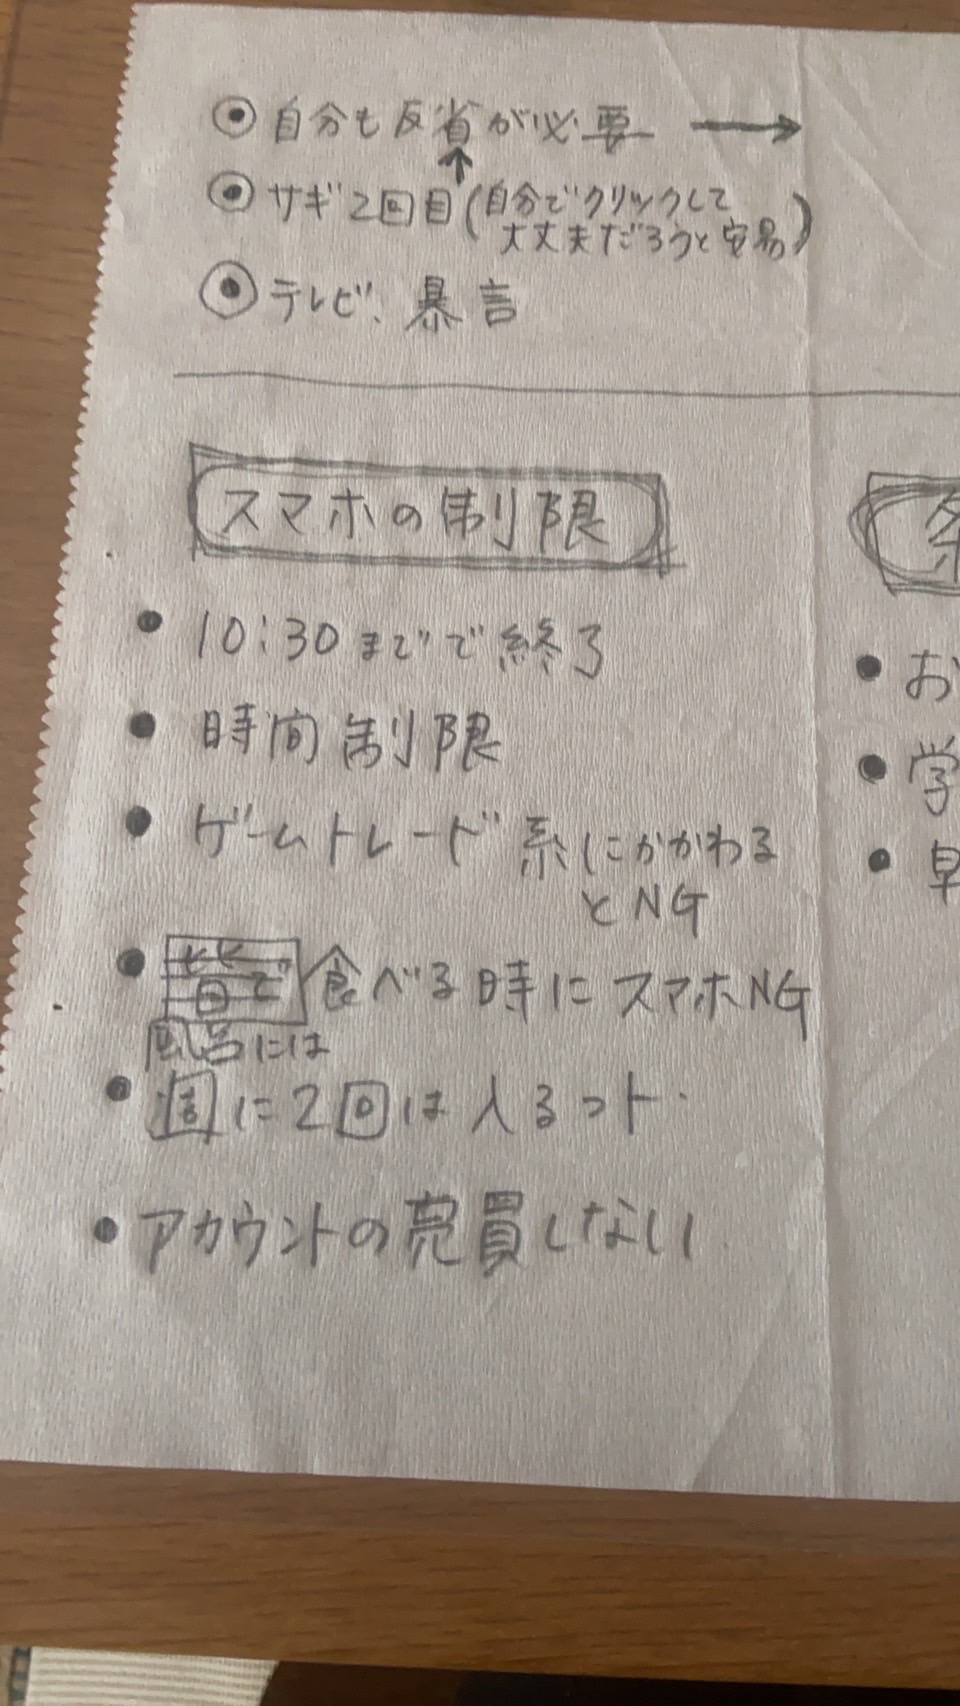 自分も反省が必要 →
↑
サギ2回目(自分でクリックして
大丈夫だろうと安易)
テレビ、暴言
スマホの制限
• 10:30までで終了
• 時間制限
• ゲームトレード系にかかわる
とNG
• 皆で食べる時にスマホNG
風呂には
• 週に2回は入るっト.
• アカウントの売買しない
• お
• 学
• 早